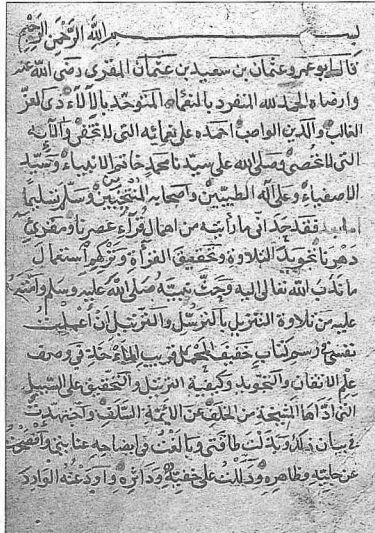 بسم الله الرحمن الرحيم
قال ابو عمرو عثمان بن سعيد بن عثمان المقرى رضى الله عنه
وارضاه الحمد لله المنفرد بالنعماء المتوحد بالآلاء ذى العز
الغالب والدين الواصب احمده على نعمائه التى لا تخفى وآلائه
التى لا تحصى وصلى الله على سيدنا محمد خاتم الانبياء وسيد
الاصفياء وعلى آله الطيبين واصحابه المنتخبين وسلم تسليما
اما بعد فقد حدانى ما رأيته من اهمال قراء عصرنا ومقرئى
دهرنا تجويد التلاوة وتحقيق القرأة وتركهم استعمال
ما ندب الله تعالى اليه وحث نبيه صلى الله عليه وسلم وامته
عليه من تلاوة التنزيل بالترسل والترتيل ان اعملت
نفسى فى رسم كتاب خفيف المحمل قريب المأخذ فى وصف
علم الاتقان والتجويد وكيفية الترتيل والتحقيق على السبيل
التى اداها المشيخة من الخلف عن الائمة السلف واجتهدت
فى بيان ذلك وبذلت طاقتى وبالغت فى ايضاحه عنايتى وافصحت
عن جليه وظاهره ودللت على خفيه وداثره واودعته الوارد